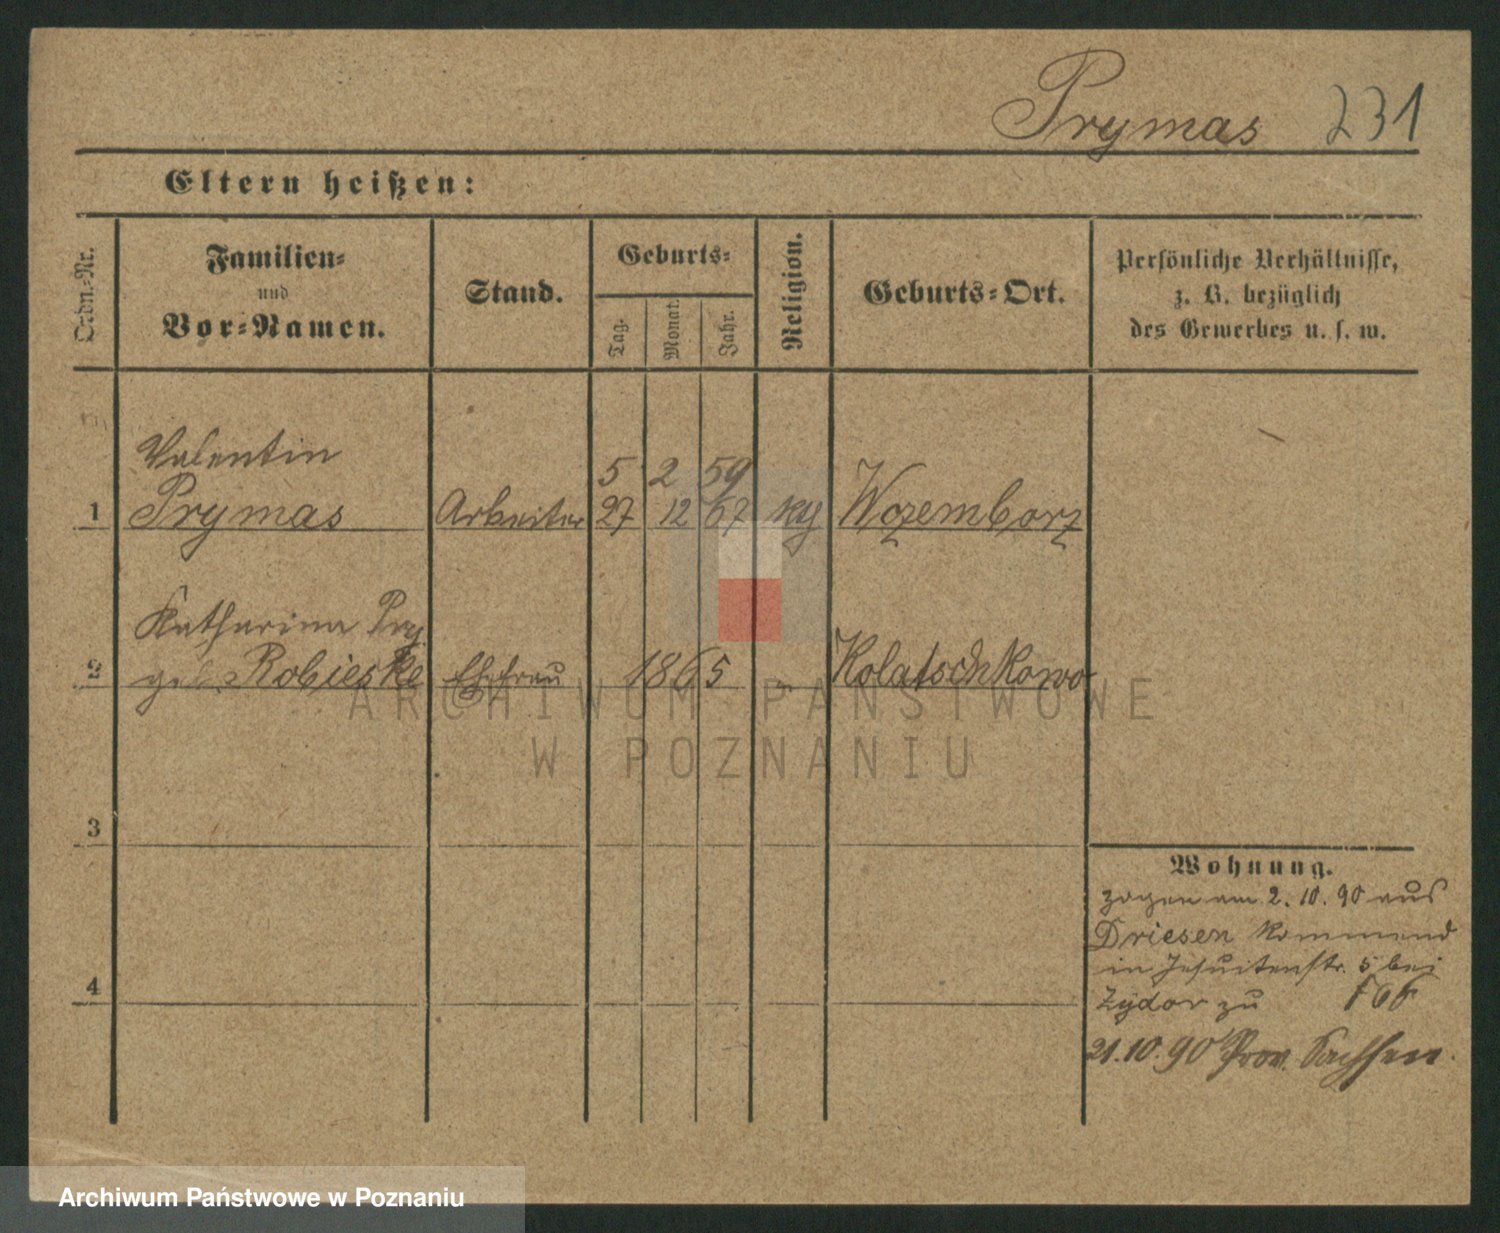 Prymas 231
Eltern heißen:
Ordn.-Nr.
Familien-
und
Vor-Namen.
Stand.
Geburts-
Tag.
Monat.
Jahr.
Religion.
Geburts-Ort.
Persönliche Verhältnisse,
z. B. bezüglich
des Gewerbes u. s. w.
Valentin 5 2 59
1 Prymas Arbeiter 27 12 67 Wozemborz
Katharina Pry
2 geb. Robieske Ehefrau 1865 Kolatschkowo
ARCHIWUM PAŃSTWOWE
W POZNANIU
3
4
Wohnung.
zogen am 2. 10. 90 aus
Driesen kommend
in Jesuitenstr. 5 bei
Zydor zu
21.10.90 Prov. Sachsen.
Archiwum Państwowe w Poznaniu